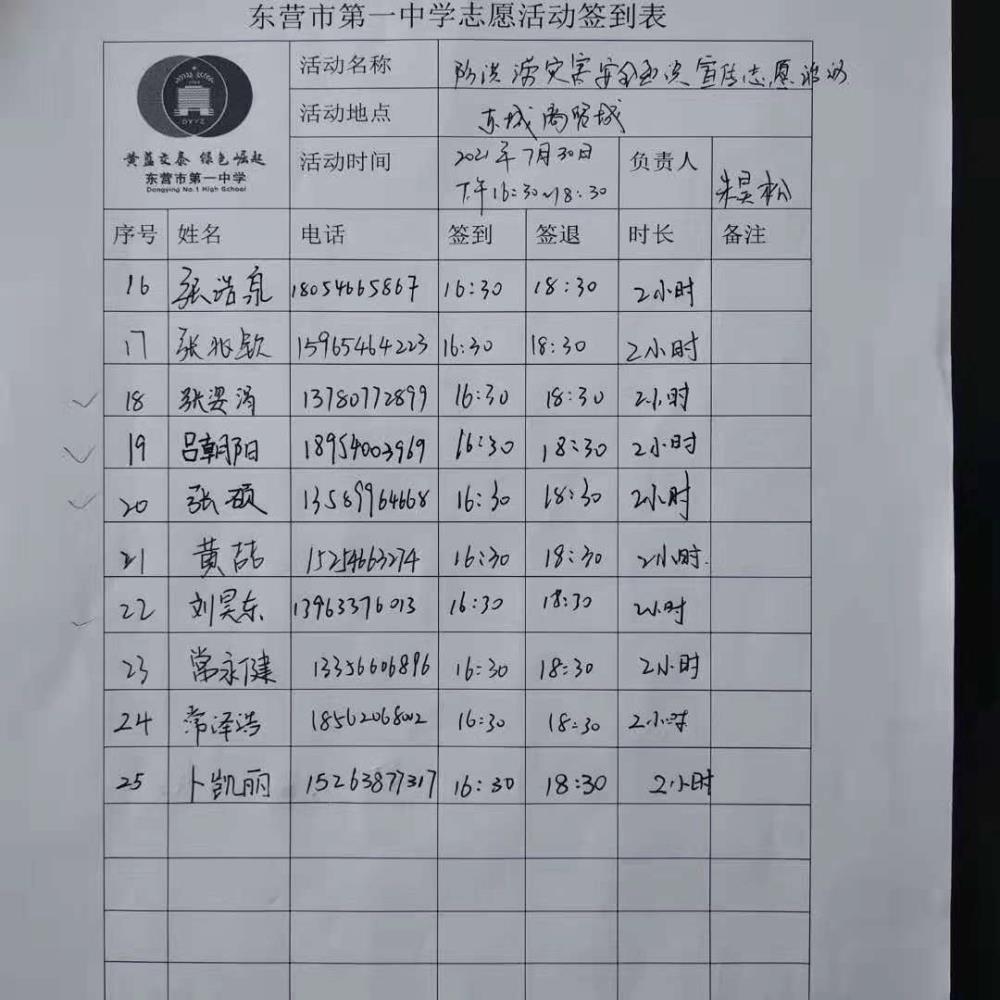 东营市第一中学志愿活动签到表
活动名称 防洪涝灾害安全知识宣传志愿活动
活动地点 东城商贸城
黄蓝交泰 绿色崛起
东营市第一中学
Dongying No.1 High School
DYYZ
活动时间 2021年7月30日 下午16:30~18:30 负责人 朱昊松
序号 姓名 电话 签到 签退 时长 备注
16 张浩泉 18054665867 16:30 18:30 2小时
17 张兆钦 15965464223 16:30 18:30 2小时
18 张梁涓 13780772899 16:30 18:30 2小时
19 吕朝阳 18954003969 16:30 18:30 2小时
20 张硕 13589964668 16:30 18:30 2小时
21 黄喆 15254663274 16:30 18:30 2小时.
22 刘昊东 13963376013 16:30 18:30 2小时
23 常永健 13356606896 16:30 18:30 2小时
24 常泽浩 18562068002 16:30 18:30 2小时
25 卜凯丽 15263877317 16:30 18:30 2小时